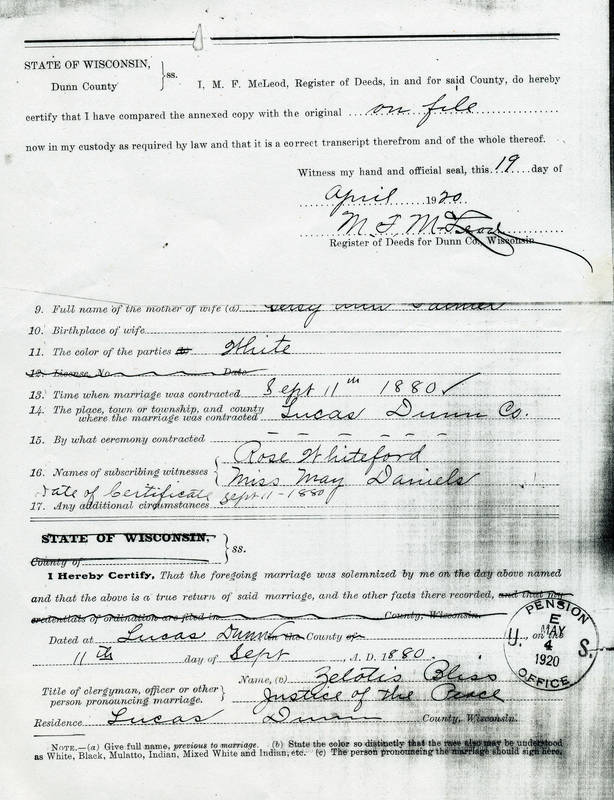 STATE OF WISCONSIN, } ss.
Dunn County
I, M. F. McLeod, Register of Deeds, in and for said County, do hereby
certify that I have compared the annexed copy with the original on file
now in my custody as required by law and that it is a correct transcript therefrom and of the whole thereof.
Witness my hand and official seal, this 19 day of
April 1920.
M. F. McLeod
Register of Deeds for Dunn Co., Wisconsin
9. Full name of the mother of wife (a)
10. Birthplace of wife
11. The color of the parties White
12. License No. Date
13. Time when marriage was contracted Sept 11th 1880
14. The place, town or township, and county
where the marriage was contracted Lucas Dunn Co.
15. By what ceremony contracted
Rose Whiteford
16. Names of subscribing witnesses { Miss May Daniels
Date of Certificate Sept 11-1880
17. Any additional circumstances
STATE OF WISCONSIN, } ss.
County of
I Hereby Certify, That the foregoing marriage was solemnized by me on the day above named
and that the above is a true return of said marriage, and the other facts there recorded, and that my
credentials of ordination are filed in County, Wisconsin.
Dated at Lucas Dunn in the County of , on the
11th day of Sept , A. D. 1880.
PENSION
E
MAY
U. 4 S.
1920
OFFICE
Name, (b) Zelotis Bliss
Title of clergyman, officer or other }
person pronouncing marriage. Justice of the Peace
Residence Lucas Dunn County, Wisconsin.
NOTE.—(a) Give full name, previous to marriage. (b) State the color so distinctly that the race also may be understood
as White, Black, Mulatto, Indian, Mixed White and Indian, etc. (c) The person pronouncing the marriage should sign here.